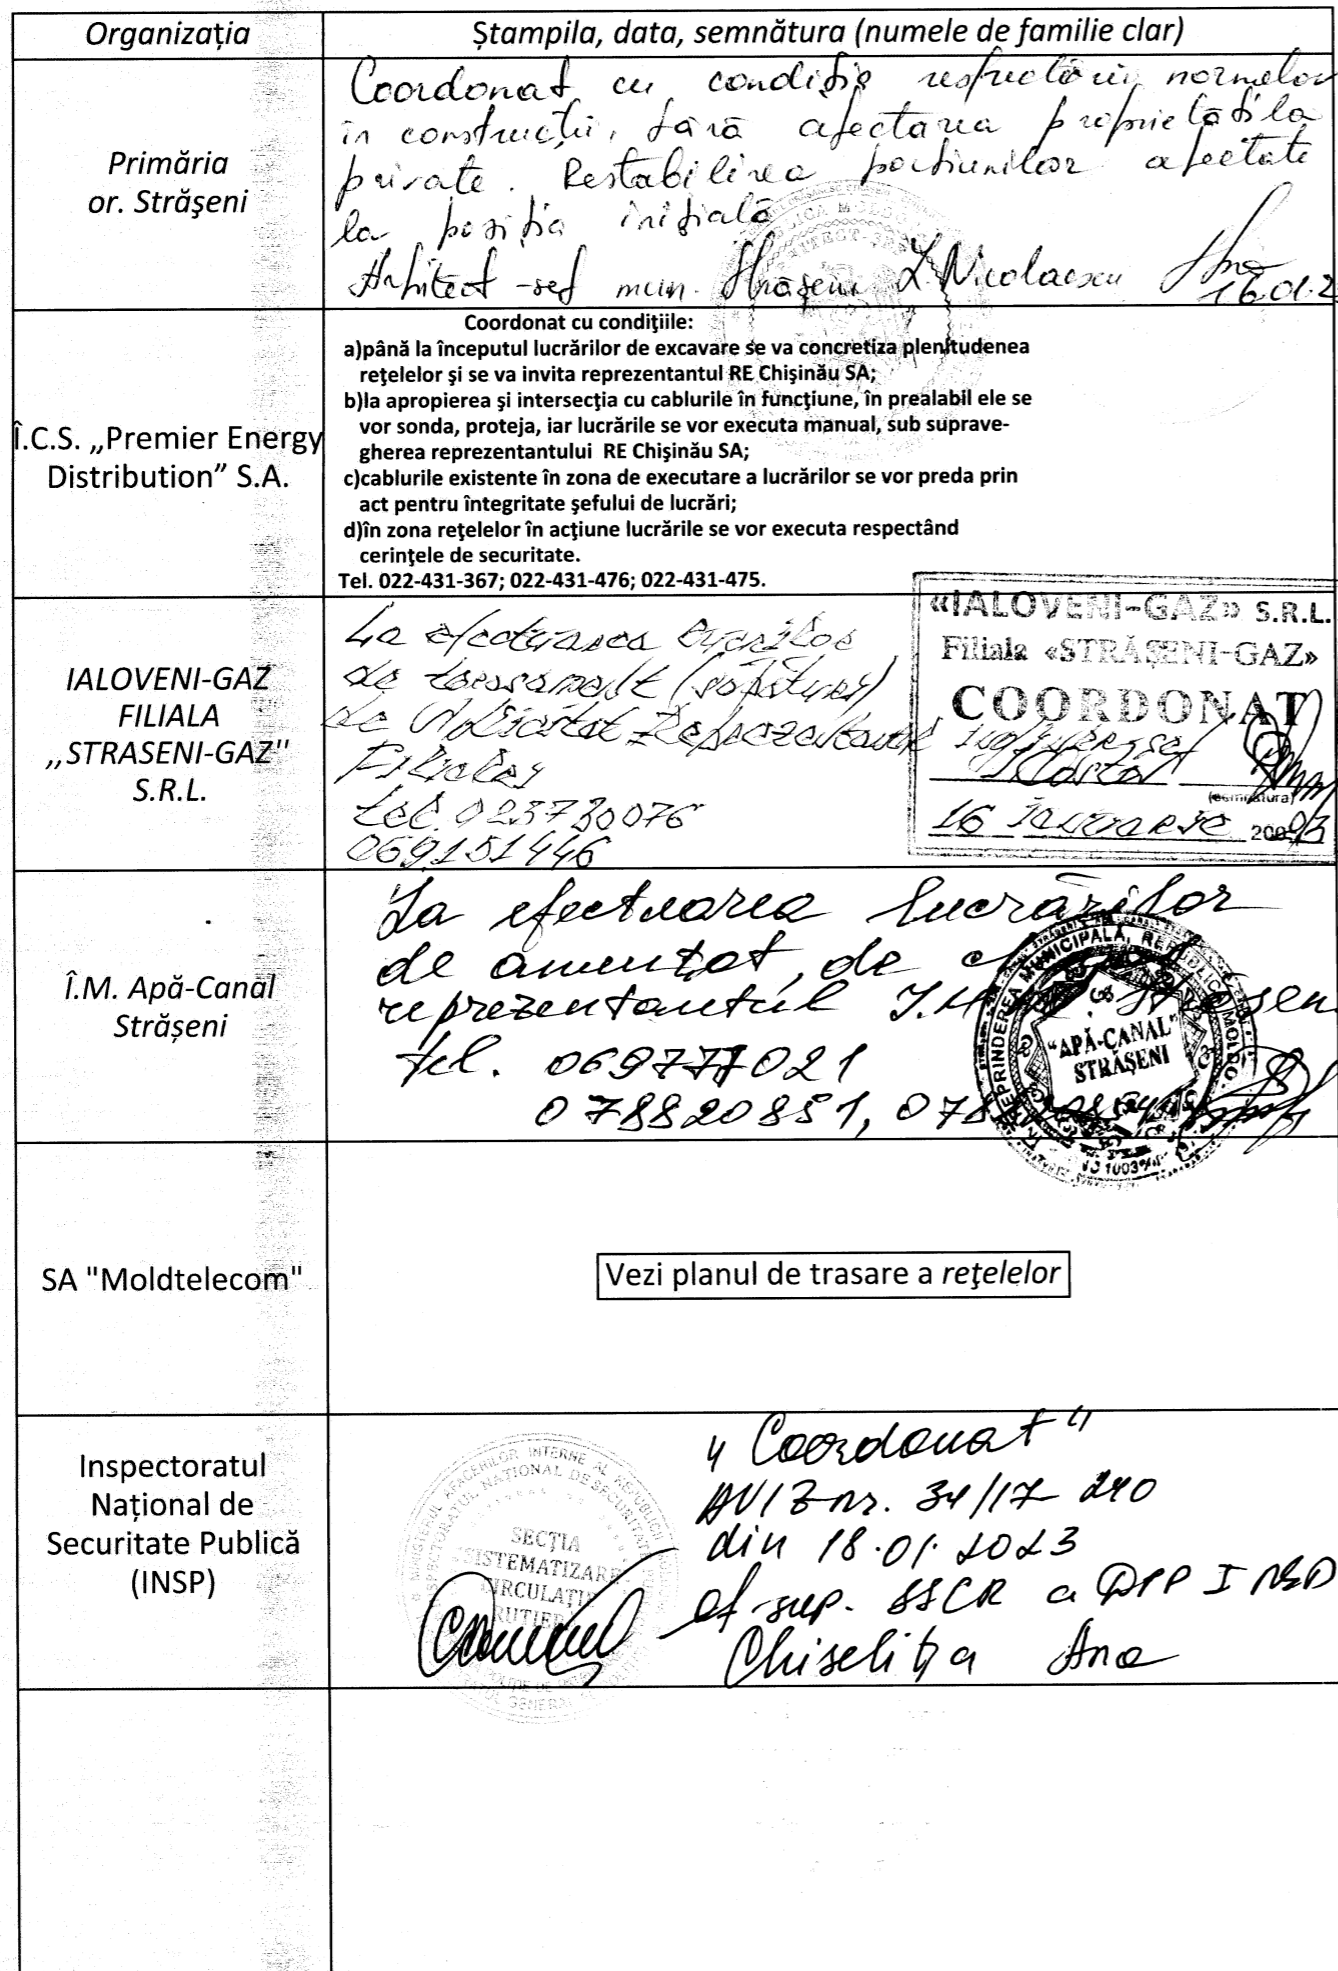 Organizația
Ștampila, data, semnătura (numele de familie clar)
Primăria
or. Străşeni
Coordonat cu condiția respectării normelor
în construcții, fără afectarea proprietăților
private. Restabilirea porțiunilor afectate
la poziția inițială
Arhitect-șef mun. Strășeni L. Nicolaescu
16.01.2
Î.C.S. „Premier Energy
Distribution” S.A.
Coordonat cu condiţiile:
a)până la începutul lucrărilor de excavare se va concretiza plenitudenea
reţelelor şi se va invita reprezentantul RE Chişinău SA;
b)la apropierea şi intersecţia cu cablurile în funcţiune, în prealabil ele se
vor sonda, proteja, iar lucrările se vor executa manual, sub suprave-
gherea reprezentantului RE Chişinău SA;
c)cablurile existente în zona de executare a lucrărilor se vor preda prin
act pentru întegritate şefului de lucrări;
d)în zona reţelelor în acţiune lucrările se vor executa respectând
cerinţele de securitate.
Tel. 022-431-367; 022-431-476; 022-431-475.
IALOVENI-GAZ
FILIALA
„STRASENI-GAZ"
S.R.L.
La efectuarea
de terasament (săpături)
de solicitat Reprezentantul
Filialei
tel. 023730076
069151446
«IALOVENI-GAZ» S.R.L.
Filiala «STRĂŞENI-GAZ»
COORDONAT
(semnătura)
16 Ianuarie 2003
Î.M. Apă-Canal
Strășeni
La efectuarea lucrărilor
de anunțat, de
reprezentantul Î.M.
tel. 069777021
078820851, 078
"APĂ-CANAL"
STRĂŞENI
SA "Moldtelecom"
Vezi planul de trasare a reţelelor
Inspectoratul
Național de
Securitate Publică
(INSP)
SECŢIA
SISTEMATIZARE
CIRCULAŢIE
RUTIERĂ
„Coordonat"
AVIZ nr. 34/17-240
din 18.01.2023
of. sup. SSCR a
Chiselița Ana